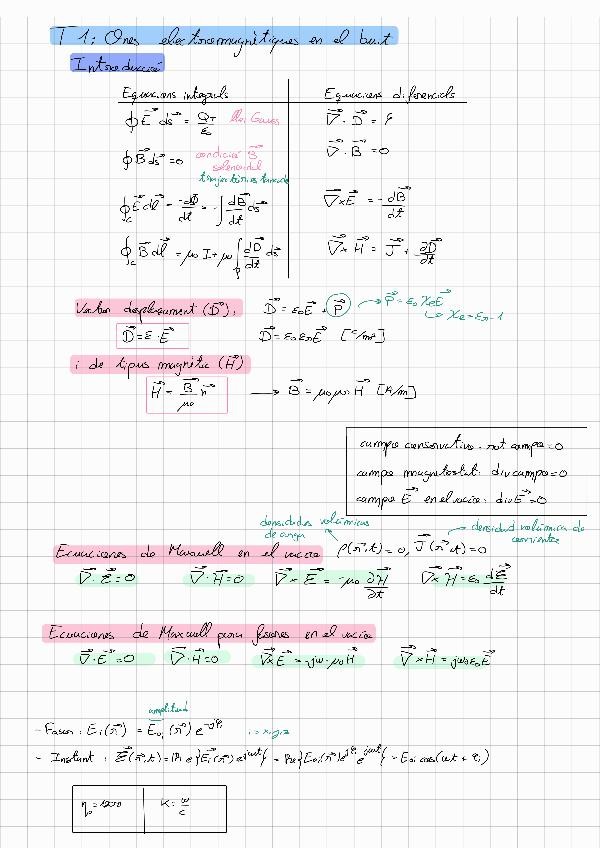 T1: Ones electromagnètiques en el buit
Introducció
Equacions integrals
Equacions diferencials
∮ E⃗ ds⃗ = QT/ε₀ llei Gauss
∇⃗ · D⃗ = ρ
∮ B⃗ ds⃗ = 0 condició B⃗ solenoidal
∇⃗ · B⃗ = 0
∮c E⃗ dl⃗ = -dΦ/dt = -∫ dB⃗/dt ds⃗
∇⃗ × E⃗ = -dB⃗/dt
∮c B⃗ dl⃗ = μ₀ I + μ₀ ∫ dD⃗/dt ds⃗
∇⃗ × H⃗ = J⃗ + ∂D⃗/∂t
Vector desplaçament (D⃗): D⃗ = ε₀E⃗ + P⃗ → P⃗ = ε₀ χe E⃗
↳ χe = εr - 1
D⃗ = ε · E⃗
D⃗ = ε₀ εr E⃗ [C/m²]
i de tipus magnètic (H⃗)
H⃗ = B⃗/μ₀
→ B⃗ = μ₀ μr H⃗ [A/m]
campo conservativo: rot campo = 0
campo magnetostat: div campo = 0
campo E⃗ en el vacío: div E⃗ = 0
densidades volúmicas de carga
densidad volúmica de corrientes
Ecuaciones de Maxwell en el vacío ρ(r⃗,t) = 0, J⃗(r⃗,t) = 0
∇⃗ · E⃗ = 0 ∇⃗ · H⃗ = 0 ∇⃗ × E⃗ = -μ₀ ∂H⃗/∂t ∇⃗ × H⃗ = ε₀ dE⃗/dt
Ecuaciones de Maxwell para fasores en el vacío
∇⃗ · E⃗ = 0 ∇⃗ · H⃗ = 0 ∇⃗ × E⃗ = -jω · μ₀ H⃗ ∇⃗ × H⃗ = jω ε₀ E⃗
amplitud
- Fasor: Ei(r⃗) = E₀i(r⃗) e^-jφi i = x, y, z
- Instant: E⃗(r⃗,t) = Re{E⃗i(r⃗) e^jωt} = Re{E₀i(r⃗) e^jφi e^jωt} = E₀i cos(ωt + φi)
η₀ = 120π
K = ω/c